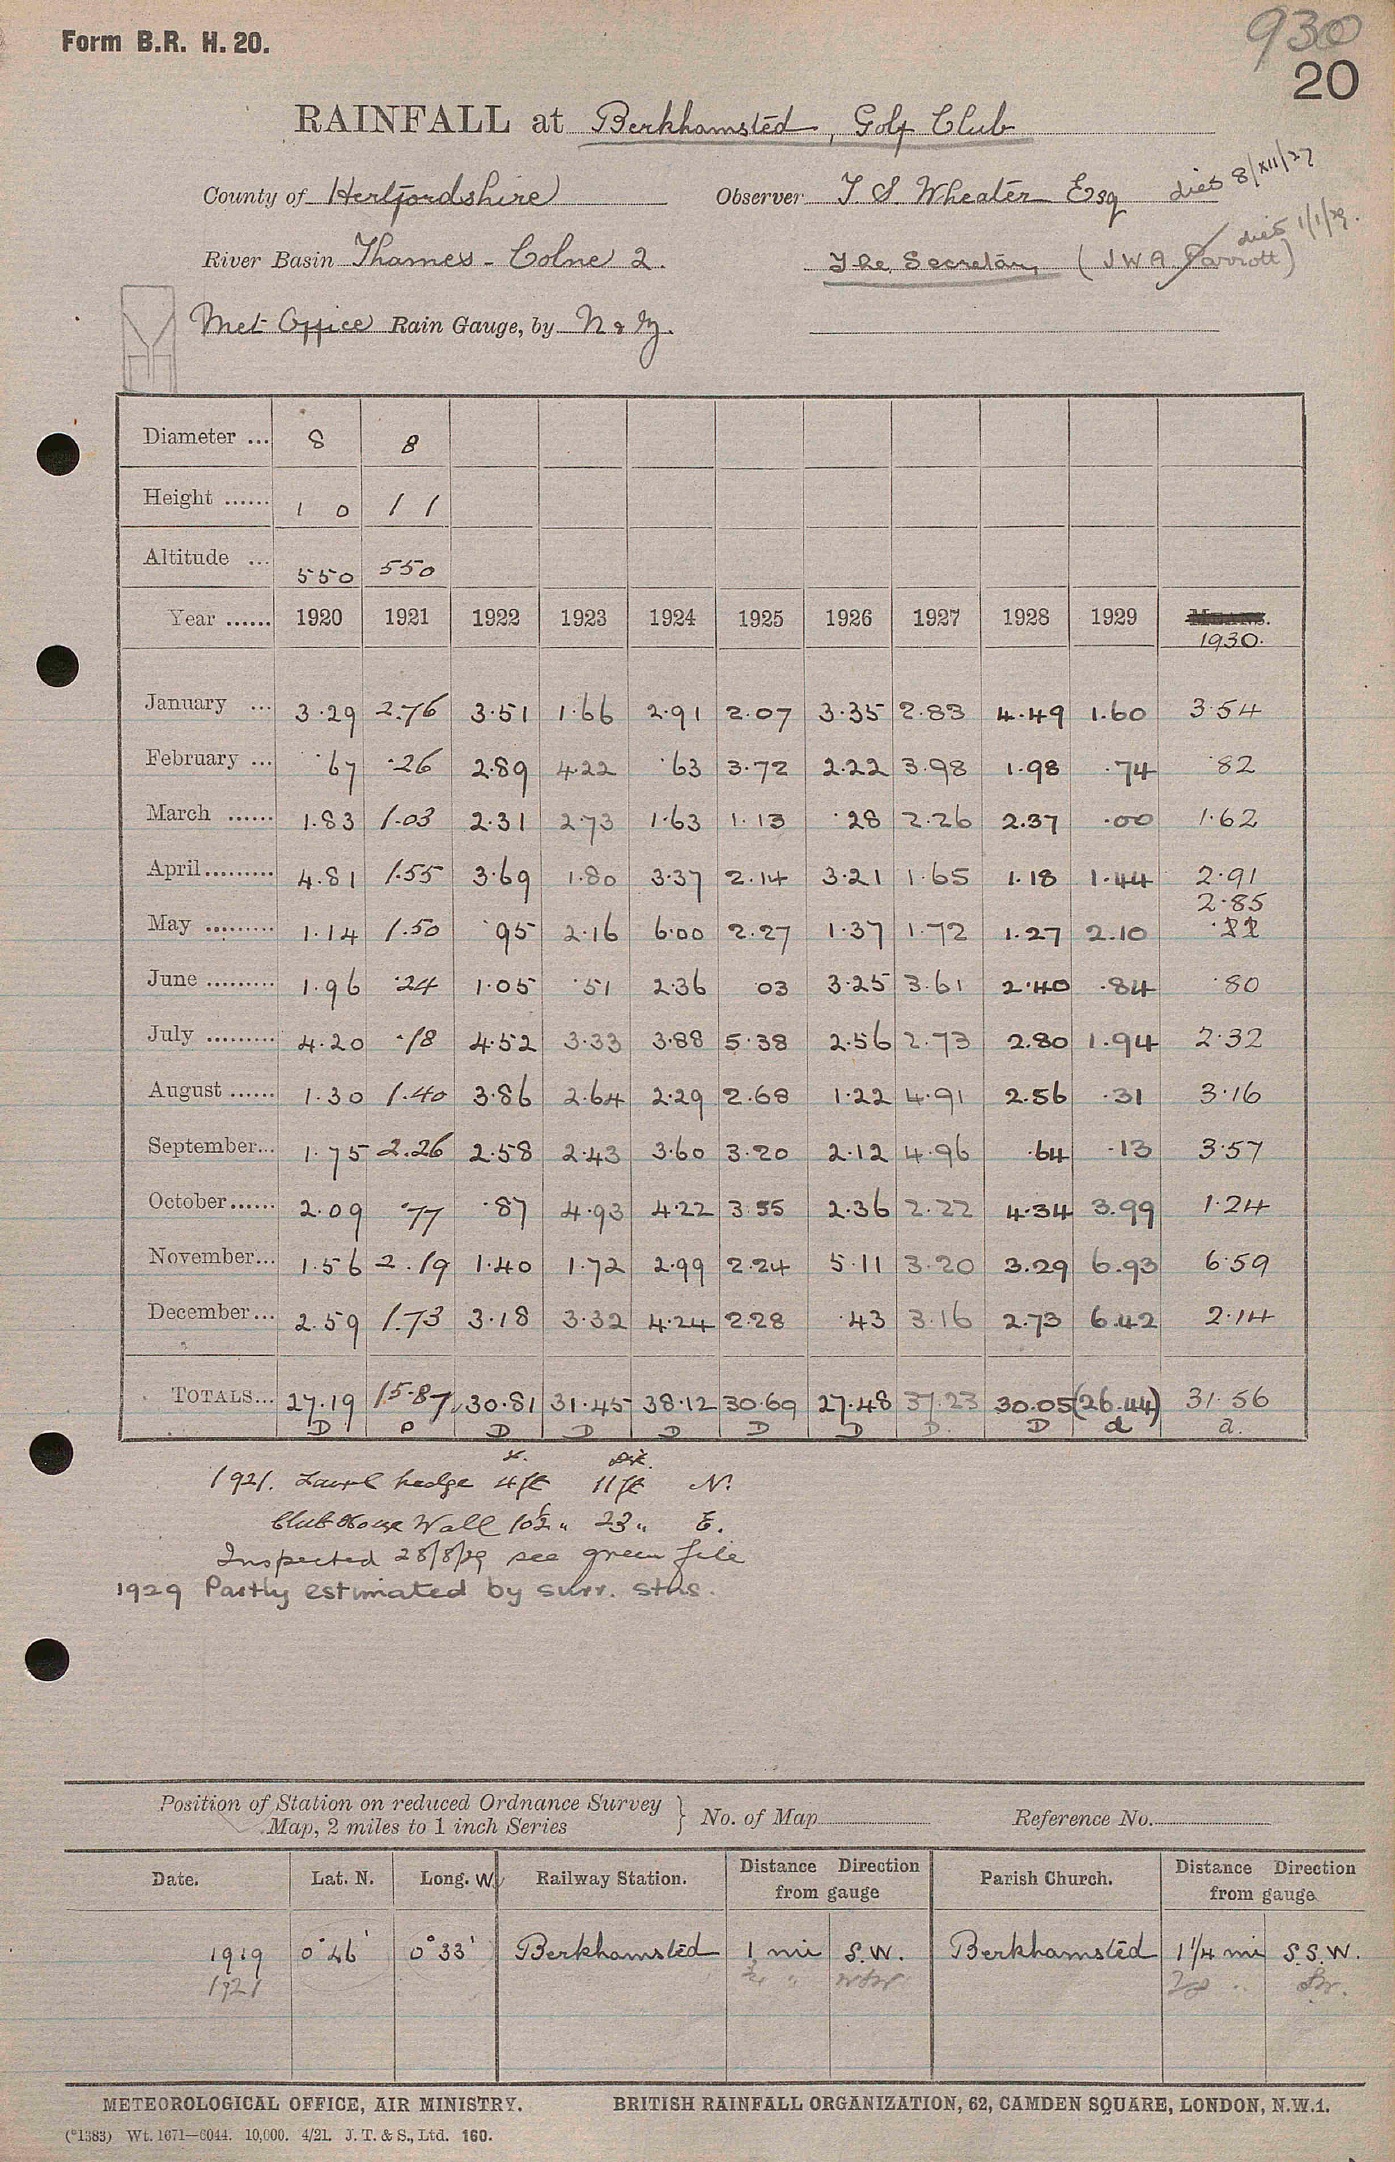 Form B.R. H. 20.
930
20
RAINFALL at Berkhamsted, Golf Club
County of Hertfordshire Observer T. S. Wheater Esq died 8/XII/27
River Basin Thames - Colne 2. The Secretary (J W A Parrott) died 1/1/29.
Met Office Rain Gauge, by N & Z.
Diameter ... 8 8
Height ...... 1 0 1 1
Altitude ... 550 550
Year ...... 1920 1921 1922 1923 1924 1925 1926 1927 1928 1929 1930.
January ... 3.29 2.76 3.51 1.66 2.91 2.07 3.35 2.83 4.49 1.60 3.54
February ... .67 .26 2.89 4.22 .63 3.72 2.22 3.98 1.98 .74 .82
March ...... 1.83 1.03 2.31 2.73 1.63 1.13 .28 2.26 2.37 .00 1.62
April ......... 4.81 1.55 3.69 1.80 3.37 2.14 3.21 1.65 1.18 1.44 2.91
2.85
May ......... 1.14 1.50 .95 2.16 6.00 2.27 1.37 1.72 1.27 2.10
June ......... 1.96 .24 1.05 .51 2.36 03 3.25 3.61 2.40 .84 .80
July ......... 4.20 .18 4.52 3.33 3.88 5.38 2.56 2.73 2.80 1.94 2.32
August ...... 1.30 1.40 3.86 2.64 2.29 2.68 1.22 4.91 2.56 .31 3.16
September... 1.75 2.26 2.58 2.43 3.60 3.20 2.12 4.96 .64 .13 3.57
October...... 2.09 .77 .87 4.93 4.22 3.55 2.36 2.22 4.34 3.99 1.24
November... 1.56 2.19 1.40 1.72 2.99 2.24 5.11 3.20 3.29 6.93 6.59
December... 2.59 1.73 3.18 3.32 4.24 2.28 .43 3.16 2.73 6.42 2.14
TOTALS... 27.19 15.87 30.81 31.45 38.12 30.69 27.48 37.23 30.05 (26.44) 31.56
D P D D D D D D. D d a.
1921. Laurel hedge 4 ft 11 ft N.
Club House Wall 10½ " 23 " E.
Inspected 28/8/29 see green file
1929 Partly estimated by surr. stns.
Position of Station on reduced Ordnance Survey
Map, 2 miles to 1 inch Series } No. of Map Reference No.
Date. Lat. N. Long. W. Railway Station. Distance Direction from gauge Parish Church. Distance Direction from gauge
1919 0° 46' 0° 33' Berkhamsted 1 mi S.W. Berkhamsted 1 1/4 mi S.S.W.
1921
METEOROLOGICAL OFFICE, AIR MINISTRY. BRITISH RAINFALL ORGANIZATION, 62, CAMDEN SQUARE, LONDON, N.W.1.
(*1383) Wt. 1671—6044. 10,000. 4/21. J. T. & S., Ltd. 160.